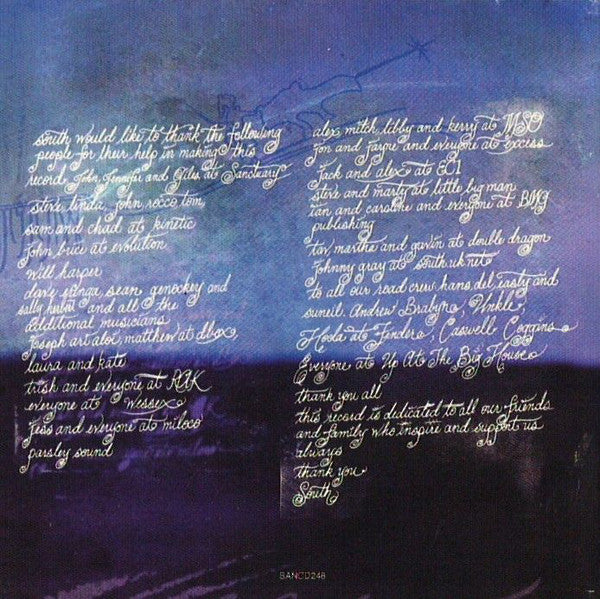 south would like to thank the following
people for their help in making this
record, John, Jennifer and Giles at Sanctuary
steve, linda, john, rocco, tom,
sam and chad at kinetic
john, bice at evolution
will harper
dave eringa, sean genockey and
sally herbert and all the
additional musicians
joseph art aloi, matthew at dbox,
laura and kate
trish and everyone at RAK
everyone at Wessex
Jess and everyone at miloco
parsley sound
alex, mitch, libby and kerry at MSO
Jon and fargie and everyone at excess
jack and alex at EC1
steve and marty at little big man
ian and caroline and everyone at BMG
publishing
tav, maxine and gavin at double dragon
Johnny gray at south.uk.net
to all our road crew hans, del, easty and
suneil. Andrew Brabyn, Unkle,
Hoola at Fender, Caswell Coggins
Everyone at Up At The Big House
thank you all
this record is dedicated to all our friends
and family who inspire and support us
always
thank you
South
SANCD248